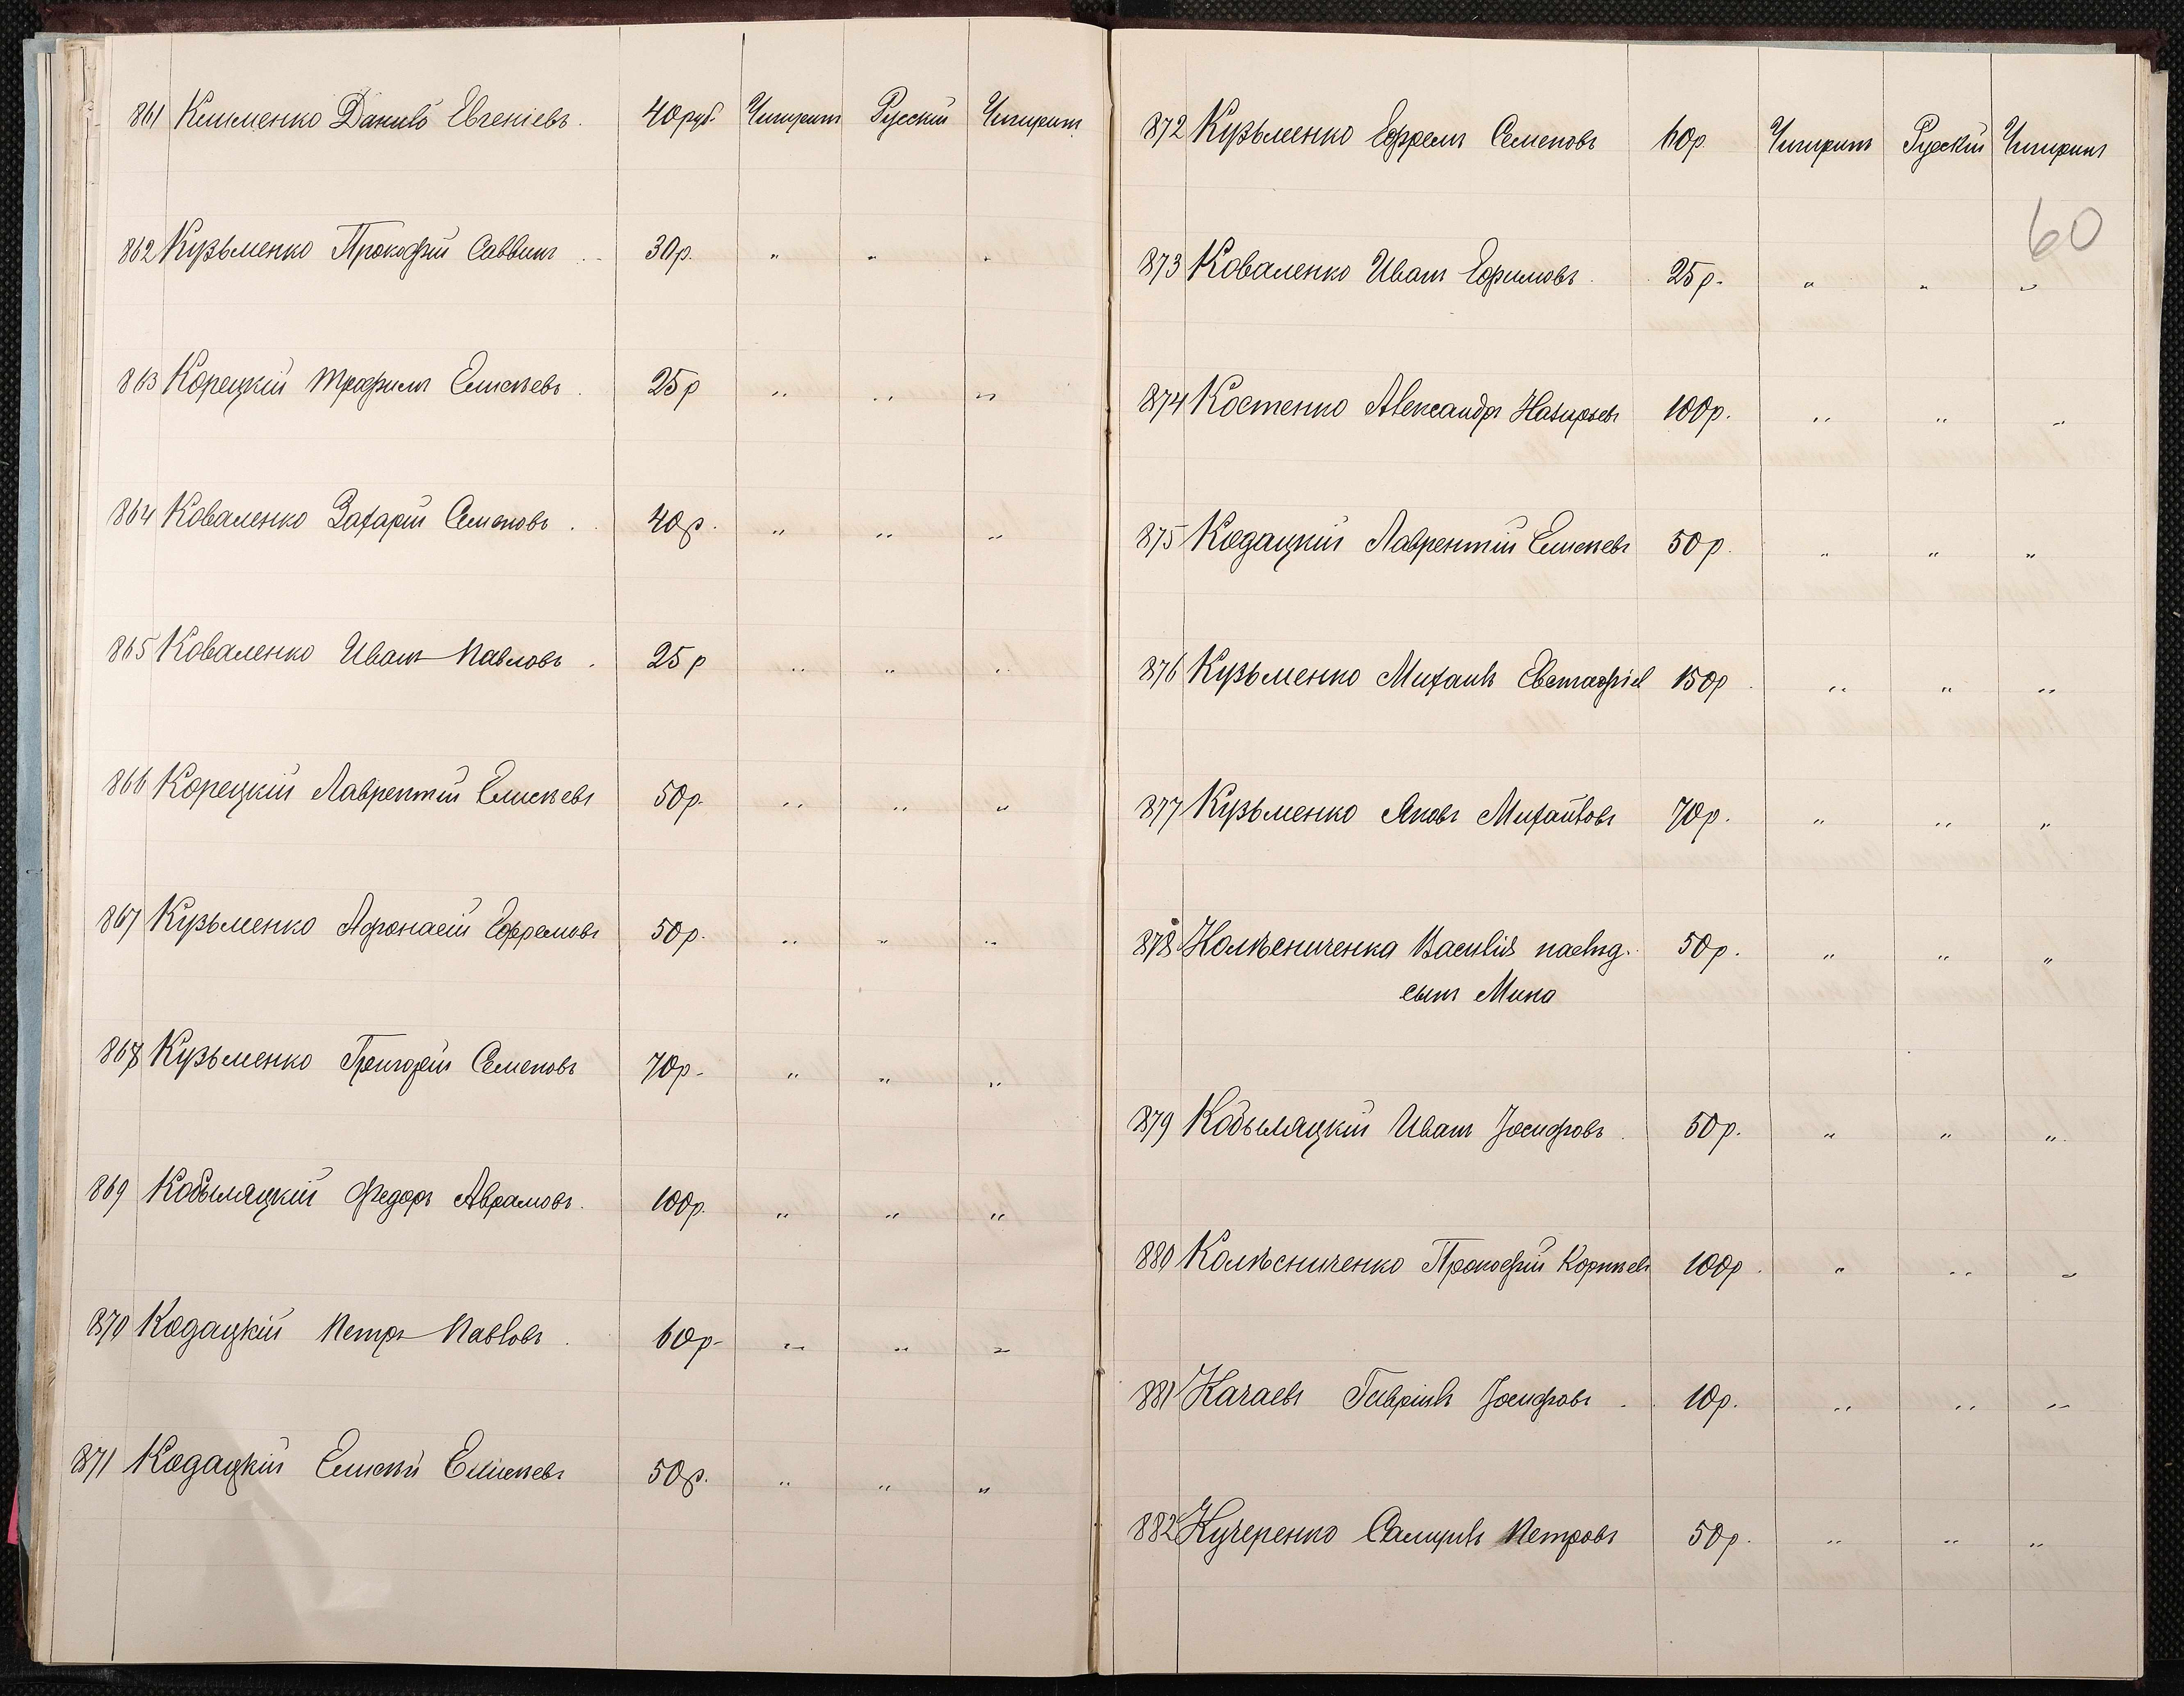 861 Клименко Данилъ Евгеніевъ. 40 руб. Чигиринъ Русскій Чигиринъ
862 Кузьменко Прокофій Саввинъ 30 р. " " "
863 Корецкій Трофимъ Елисѣевъ 25 р " " "
864 Коваленко Захарій Семеновъ 40 р. " " "
865 Коваленко Иванъ Павловъ 25 р " " "
866 Корецкій Лаврентій Елисѣевъ 50 р. " " "
867 Кузьменко Афонасій Ефремовъ 50 р. " " "
868 Кузьменко Григорій Семеновъ 70 р. " " "
869 Кобыляцкій Федоръ Аврамовъ. 100 р. " " "
870 Кодацкій Петръ Павловъ 60 р. " " "
871 Кодацкій Елисѣй Елисѣевъ 50 р. " " "
872 Кузьменко Ефремъ Семеновъ р. Чигиринъ Русскій Чигиринъ
60
873 Коваленко Иванъ Ефимовъ 25 р. " " "
874 Костенко Александръ 100 р. " " "
875 Кодацкій Лаврентій Елисѣевъ 50 р. " " "
876 Кузьменко Михаилъ Евстафіев 150 р " " "
877 Кузьменко Яковъ Михайловъ 70 р. " " "
878 Колѣсниченка Василія наслѣд. 50 р. " " "
сынъ Мина
879 Кобыляцкій Иванъ Іосифовъ 50 р. " " "
880 Колѣсниченко Прокофій Корнѣевъ 100 р " " "
881 Качаевъ Гавріилъ Іосифовъ 10 р. " " "
882 Кучеренко Самуилъ Петровъ 50 р. " " "